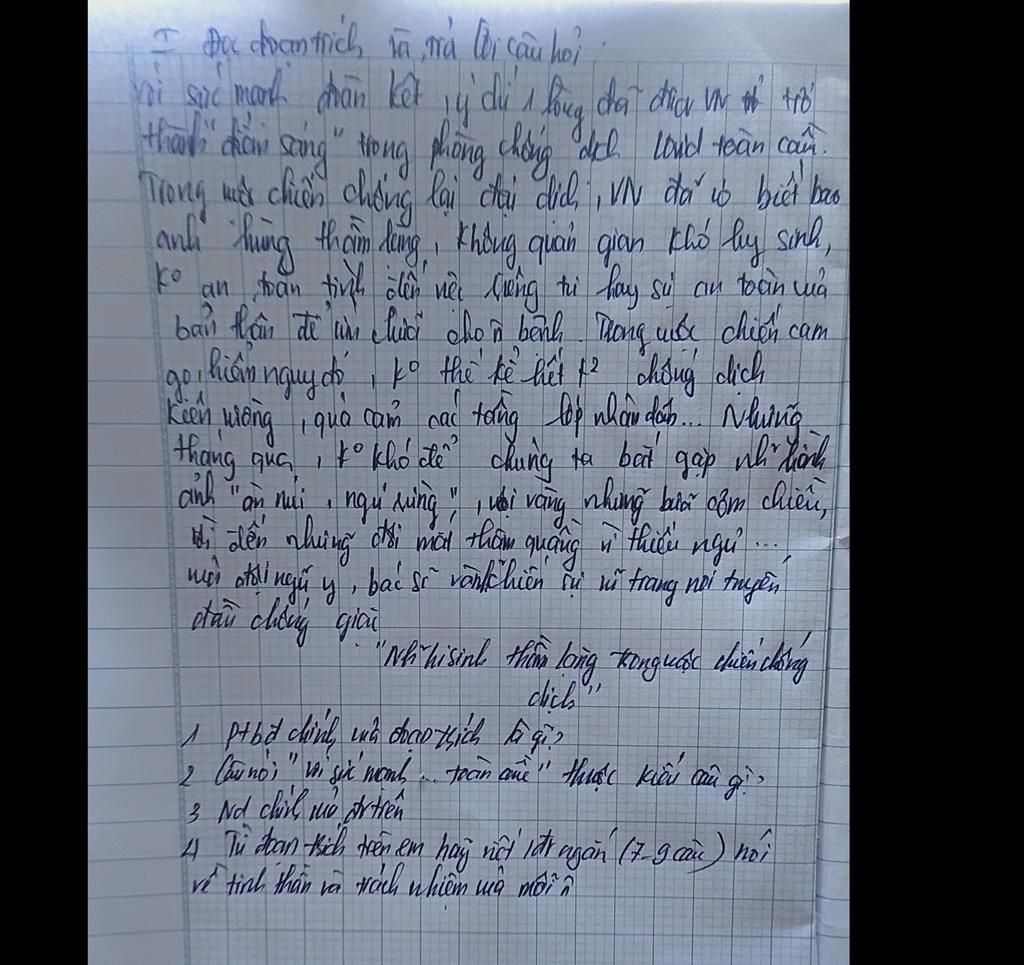 I Đọc đoạn trích và trả lời câu hỏi.
Với sức mạnh đoàn kết, ý chí 1 lòng đã đưa VN trở
thành "điểm sáng" trong phòng chống dịch covid toàn cầu.
Trong cuộc chiến chống lại đại dịch, VN đã có biết bao
anh hùng thầm lặng, không quản gian khó hy sinh,
k° toàn tính đến việc riêng tư hay sự an toàn của
bản thân để cứu chữa cho n bệnh. Trong cuộc chiến cam
go, hiểm nguy đó, k° thể kể hết chống dịch
kiên cường, quả cảm các tầng lớp nhân dân... Những
tháng qua, k° khó để chúng ta bắt gặp nh~ hình
ảnh "ăn núi, ngủ rừng", vội vàng những bữa cơm chiều,
đến những đôi mắt thâm quầng vì thiếu ngủ...
của đội ngũ y, bác sĩ và chiến sĩ vũ trang nơi tuyến
đầu chống giặc
"Nh~ hi sinh thầm lặng trong cuộc chiến chống
dịch"
1 Ptbđ chính của đoạn trích là gì?
2 Câu nói "Với sức mạnh... toàn cầu" thuộc kiểu câu gì?
3 Nd chính của đt trên
4 Từ đoạn trích trên em hãy viết 1 đv ngắn (7-9 câu) nói
về tinh thần và trách nhiệm của mỗi n